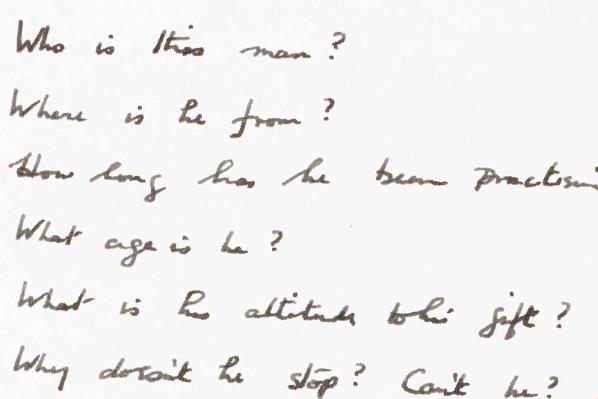 Who is this man?
Where is he from?
How long has he been practisin
What age is he?
What is his attitude to his gift?
Why doesn't he stop? Can't he?